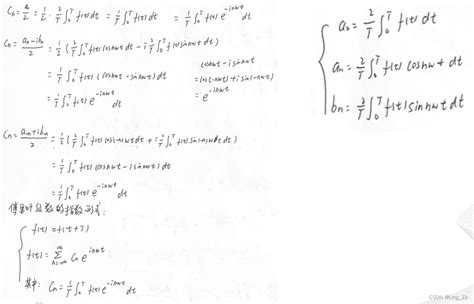 C₀ = a₀/2 = 1/2 · 2/T ∫₀ᵀ f(t) dt = 1/T ∫₀ᵀ f(t) dt = 1/T ∫₀ᵀ f(t) e^{i0wt} dt
Cn = (an - ibn)/2 = 1/2 (2/T ∫₀ᵀ f(t) cosnwt dt - i 2/T ∫₀ᵀ f(t) sinnwt dt)
= 1/T ∫₀ᵀ f(t) (cosnwt - sinnwt) dt
cosnwt - isinnwt
= cos(-nwt) + isin(-nwt)
= e^{-inwt}
= 1/T ∫₀ᵀ f(t) e^{-inwt} dt
Cn = (an + ibn)/2 = 1/2 (2/T ∫₀ᵀ f(t) cos(-n)wt dt + i 2/T ∫₀ᵀ f(t) sin(-n)wt dt)
= 1/T ∫₀ᵀ f(t) (cosnwt - isinnwt) dt
= 1/T ∫₀ᵀ f(t) e^{-inwt} dt
傅里叶级数的指数形式:
f(t) = f(t+T)
f(t) = Σ_{n=-∞}^{∞} Cn e^{inwt}
其中: Cn = 1/T ∫₀ᵀ f(t) e^{-inwt} dt
a₀ = 2/T ∫₀ᵀ f(t) dt
an = 2/T ∫₀ᵀ f(t) cosnwt dt
bn = 2/T ∫₀ᵀ f(t) sinnwt dt